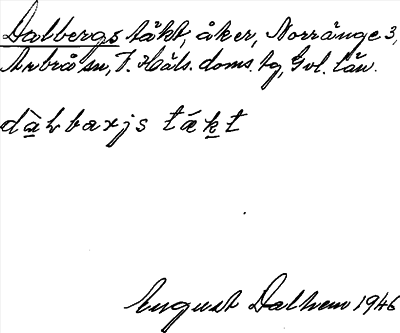 Dalbergs täkt, åker, Norränge 3,
Arbrå sn, V. Häls. doms. tg, Gvl. län.
dàlbarjs täkt
August Dalhem 1946